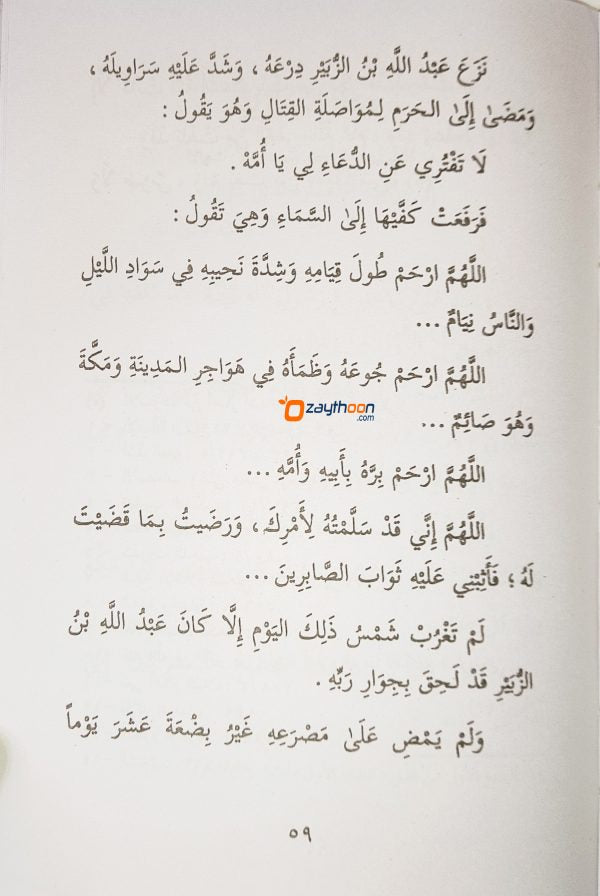 نَزَعَ عَبْدُ اللَّهِ بْنُ الزُّبَيْرِ دِرْعَهُ ، وَشَدَّ عَلَيْهِ سَرَاوِيلَهُ ،
وَمَضَىٰ إِلَىٰ الحَرَمِ لِمُوَاصَلَةِ القِتَالِ وَهُوَ يَقُولُ :
لَا تَفْتُرِي عَنِ الدُّعَاءِ لِي يَا أُمَّهْ .
فَرَفَعَتْ كَفَّيْهَا إِلَىٰ السَّمَاءِ وَهِيَ تَقُولُ :
اللَّهُمَّ ارْحَمْ طُولَ قِيَامِهِ وَشِدَّةَ نَحِيبِهِ فِي سَوَادِ اللَّيْلِ
وَالنَّاسُ نِيَامٌ ...
اللَّهُمَّ ارْحَمْ جُوعَهُ وَظَمَأَهُ فِي هَوَاجِرِ المَدِينَةِ وَمَكَّةَ
ozaythoon.com
وَهُوَ صَائِمٌ ...
اللَّهُمَّ ارْحَمْ بِرَّهُ بِأَبِيهِ وَأُمِّهِ ...
اللَّهُمَّ إِنِّي قَدْ سَلَّمْتُهُ لِأَمْرِكَ ، وَرَضِيتُ بِمَا قَضَيْتَ
لَهُ ؛ فَأَثِبْنِي عَلَيْهِ ثَوَابَ الصَّابِرِينَ ...
لَمْ تَغْرُبْ شَمْسُ ذَلِكَ اليَوْمِ إِلَّا كَانَ عَبْدُ اللَّهِ بْنُ
الزُّبَيْرِ قَدْ لَحِقَ بِجِوَارِ رَبِّهِ .
وَلَمْ يَمْضِ عَلَىٰ مَصْرَعِهِ غَيْرُ بِضْعَةَ عَشَرَ يَوْماً
٥٩